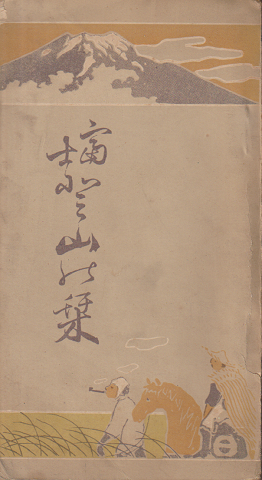 富士登山の栞